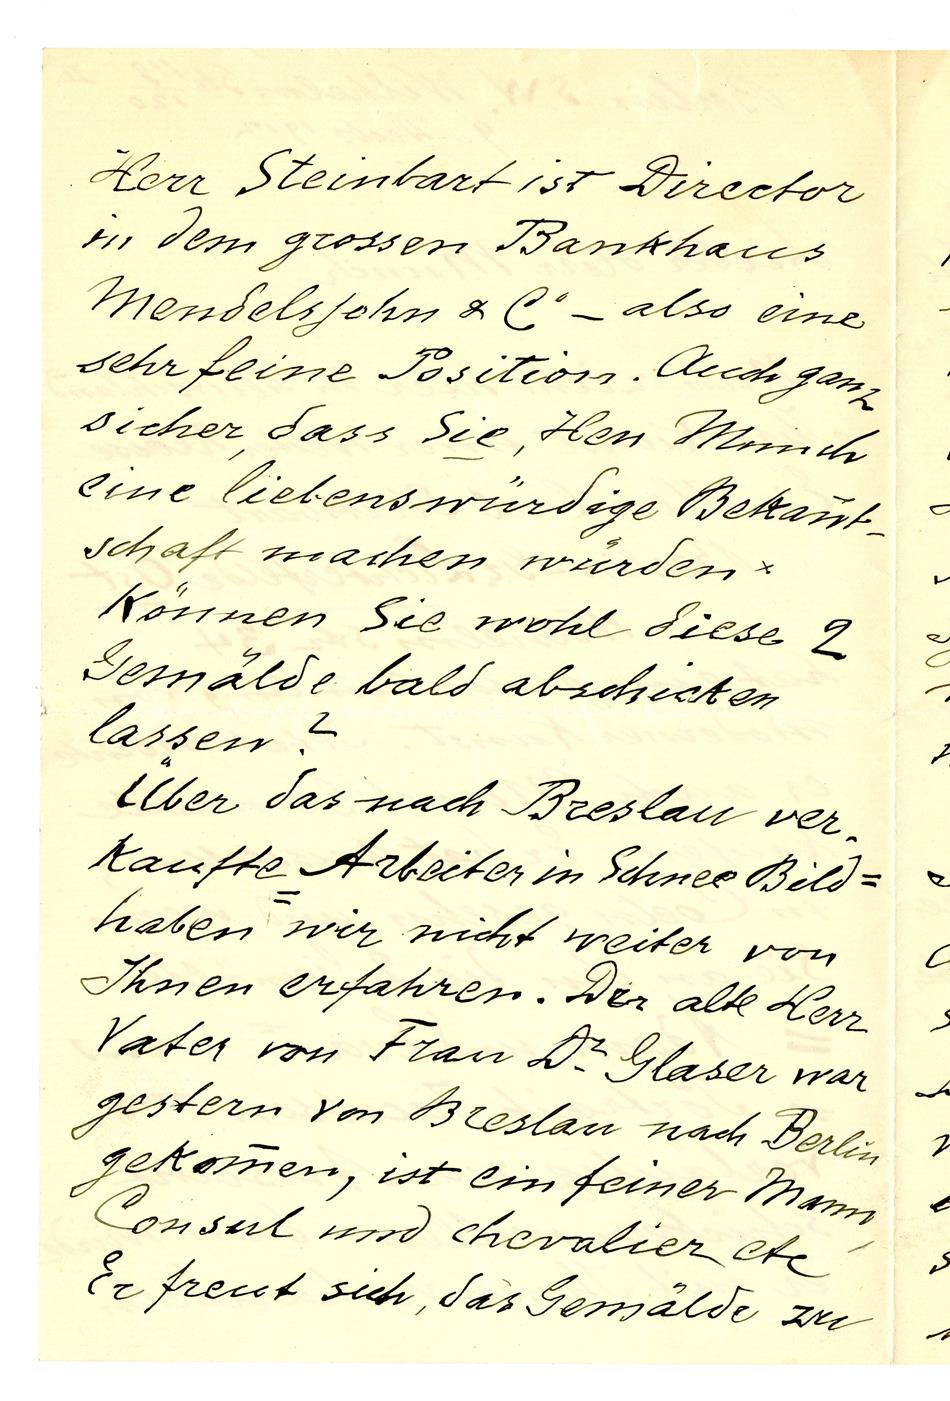 Herr Steinbart ist Director
in dem grossen Bankhaus
Mendelssohn & Co – also eine
sehr feine Position. Auch ganz
sicher, dass Sie, Herr Munch
eine liebenswürdige Bekan̄t-
schaft machen würden ×
Können Sie wohl diese 2
Gemälde bald abschicken
lassen?
Über das nach Breslau ver-
kaufte Arbeiter in Schnee Bild =
haben wir nicht weiter von
Ihnen erfahren. Der alte Herr
Vater von Frau Dr. Glaser war
gestern von Breslau nach Berlin
gekom̄en, ist ein feiner Mann,
Consul und chevalier etc
Er freut sich, das Gemälde zu